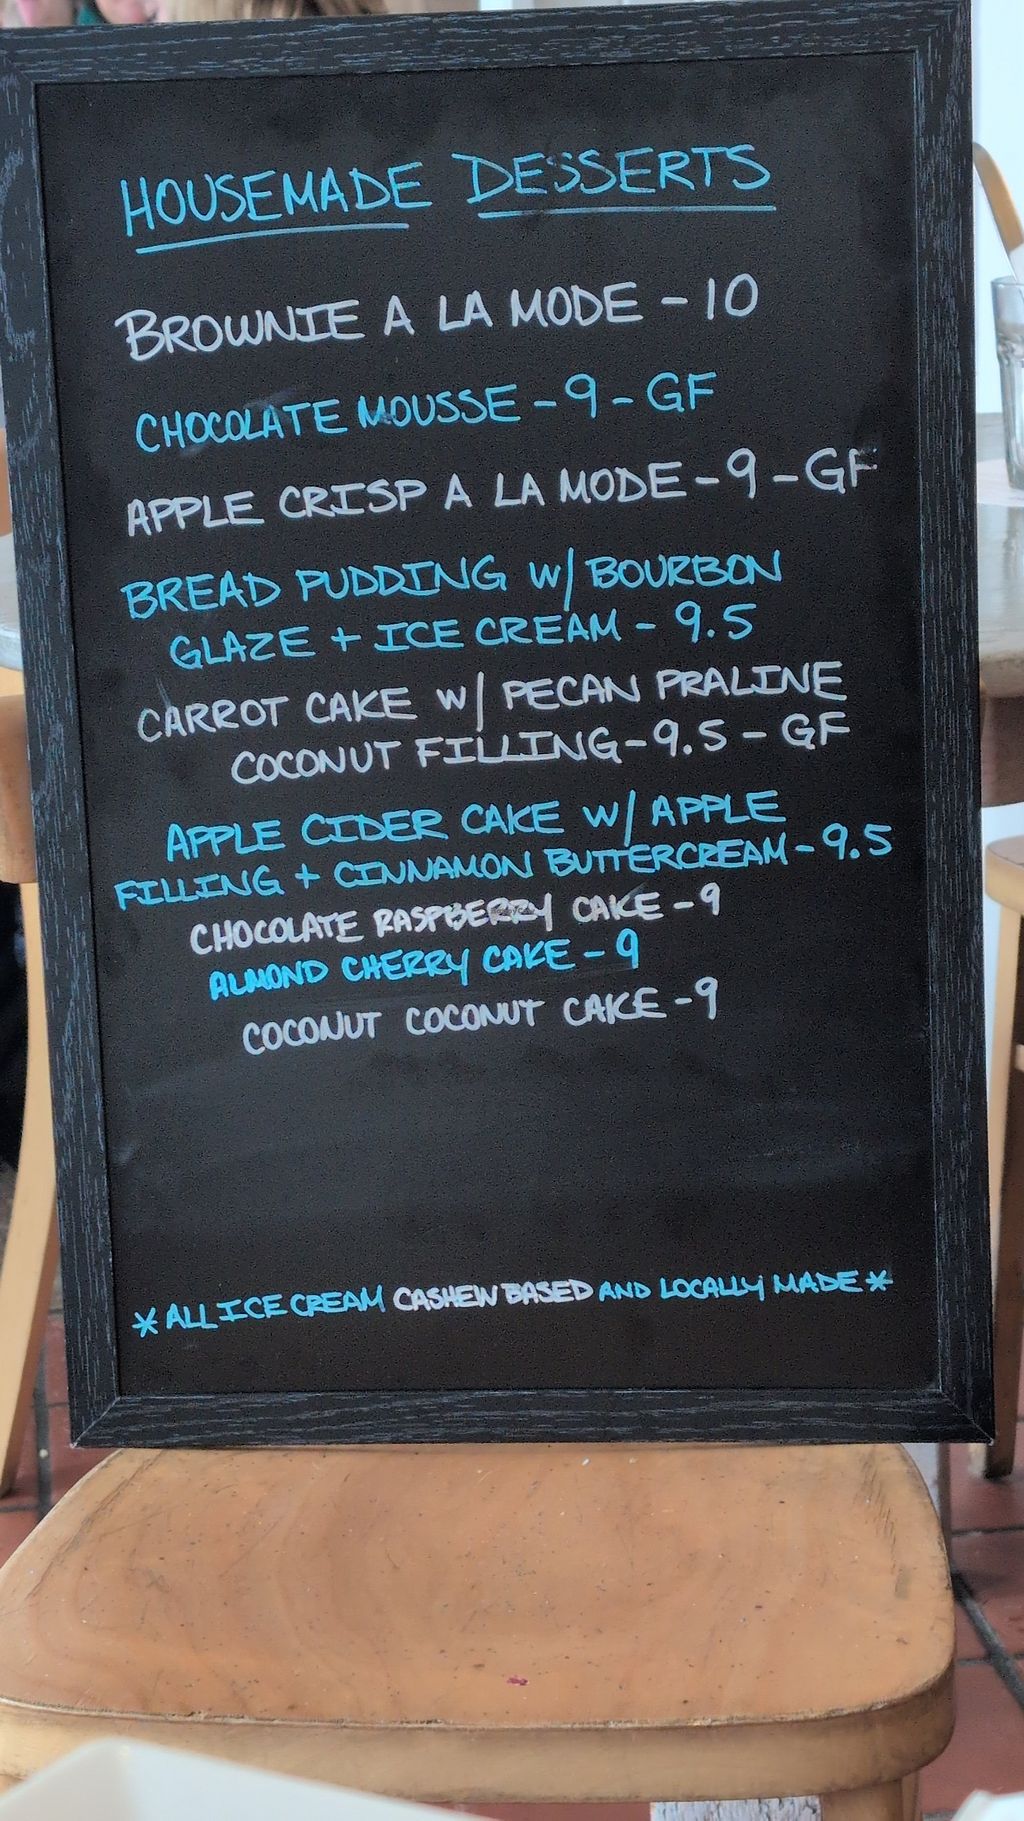 HOUSEMADE DESSERTS
BROWNIE A LA MODE - 10
CHOCOLATE MOUSSE - 9 - GF
APPLE CRISP A LA MODE - 9 - GF
BREAD PUDDING W/ BOURBON
GLAZE + ICE CREAM - 9.5
CARROT CAKE W/ PECAN PRALINE
COCONUT FILLING - 9.5 - GF
APPLE CIDER CAKE W/ APPLE
FILLING + CINNAMON BUTTERCREAM - 9.5
CHOCOLATE RASPBERRY CAKE - 9
ALMOND CHERRY CAKE - 9
COCONUT COCONUT CAKE - 9
* ALL ICE CREAM CASHEW BASED AND LOCALLY MADE *